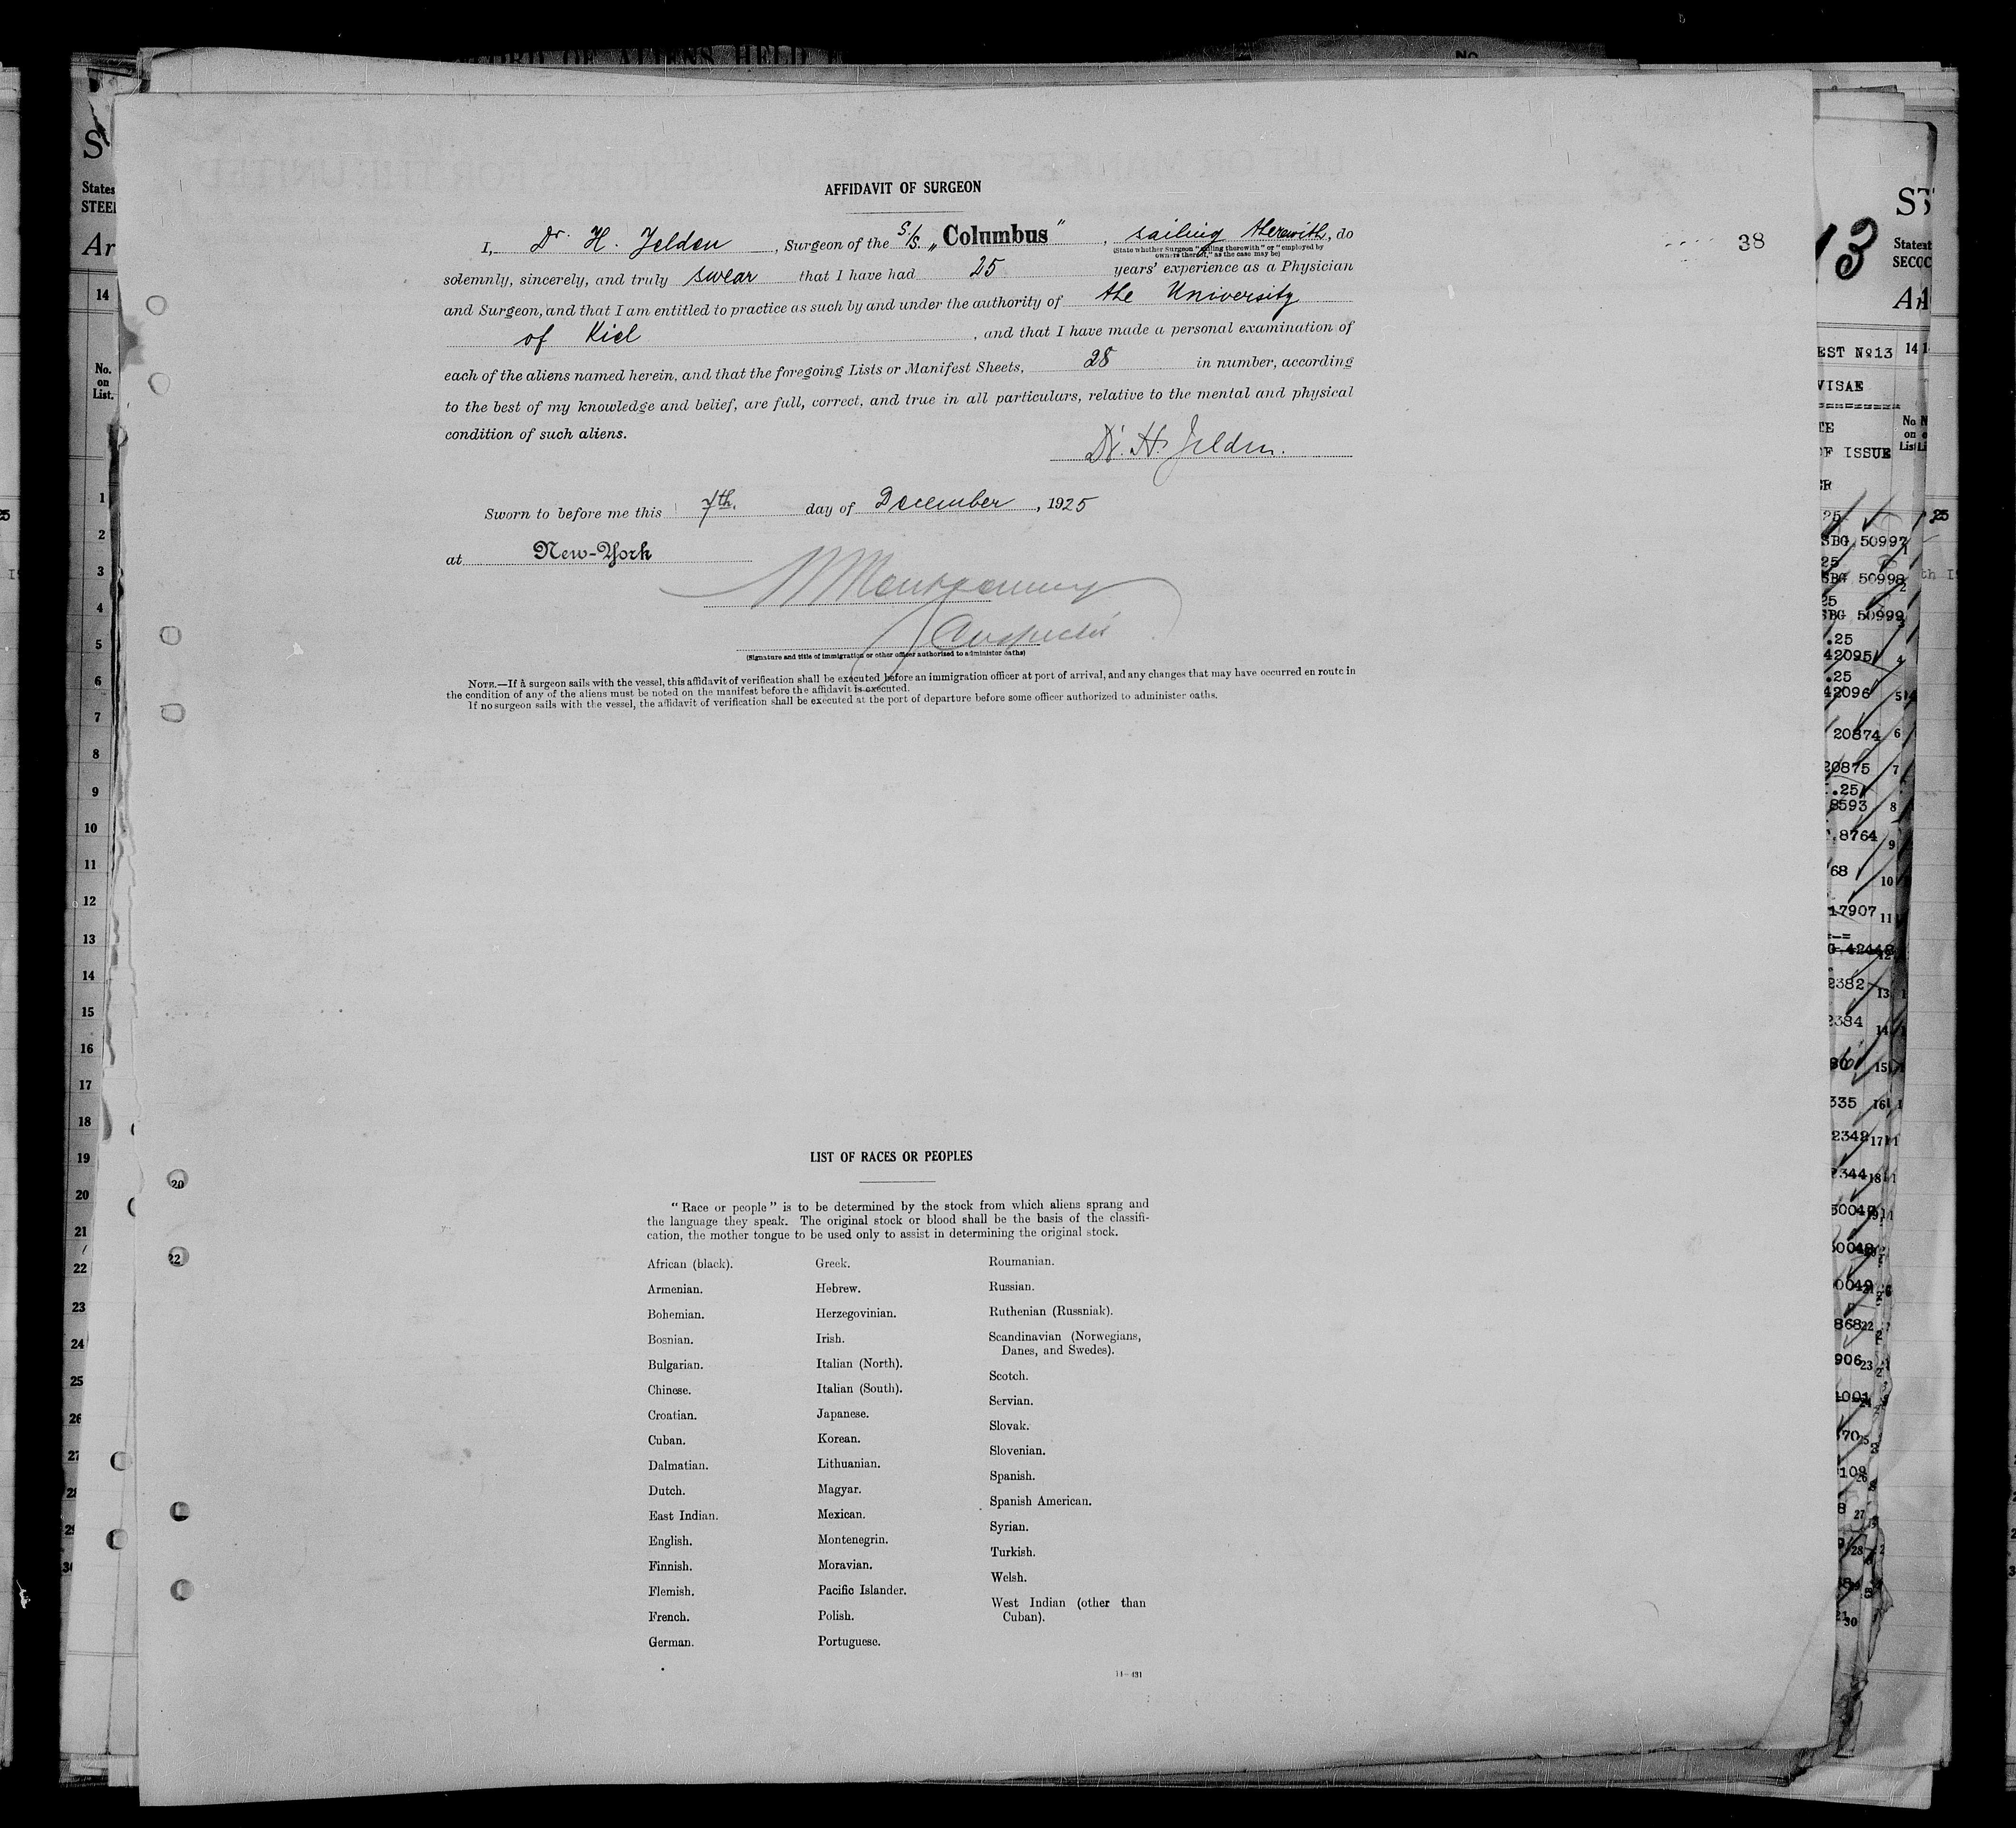 AFFIDAVIT OF SURGEON
I, Dr. H. Jelden, Surgeon of the S/S. „Columbus", sailing therewith, do
(State whether Surgeon "sailing therewith" or "employed by
owners thereof," as the case may be)
solemnly, sincerely, and truly swear that I have had 25 years' experience as a Physician
and Surgeon, and that I am entitled to practice as such by and under the authority of the University
of Kiel, and that I have made a personal examination of
each of the aliens named herein, and that the foregoing Lists or Manifest Sheets, 28 in number, according
to the best of my knowledge and belief, are full, correct, and true in all particulars, relative to the mental and physical
condition of such aliens.
Dr. H. Jelden.
Sworn to before me this 7th. day of December, 1925
at New-York
Montgomery
Inspector
(Signature and title of immigration or other officer authorized to administer oaths)
NOTE.—If a surgeon sails with the vessel, this affidavit of verification shall be executed before an immigration officer at port of arrival, and any changes that may have occurred en route in
the condition of any of the aliens must be noted on the manifest before the affidavit is executed.
If no surgeon sails with the vessel, the affidavit of verification shall be executed at the port of departure before some officer authorized to administer oaths.
38
LIST OF RACES OR PEOPLES
"Race or people" is to be determined by the stock from which aliens sprang and
the language they speak. The original stock or blood shall be the basis of the classifi-
cation, the mother tongue to be used only to assist in determining the original stock.
African (black).
Armenian.
Bohemian.
Bosnian.
Bulgarian.
Chinese.
Croatian.
Cuban.
Dalmatian.
Dutch.
East Indian.
English.
Finnish.
Flemish.
French.
German.
Greek.
Hebrew.
Herzegovinian.
Irish.
Italian (North).
Italian (South).
Japanese.
Korean.
Lithuanian.
Magyar.
Mexican.
Montenegrin.
Moravian.
Pacific Islander.
Polish.
Portuguese.
Roumanian.
Russian.
Ruthenian (Russniak).
Scandinavian (Norwegians,
Danes, and Swedes).
Scotch.
Servian.
Slovak.
Slovenian.
Spanish.
Spanish American.
Syrian.
Turkish.
Welsh.
West Indian (other than
Cuban).
14—431